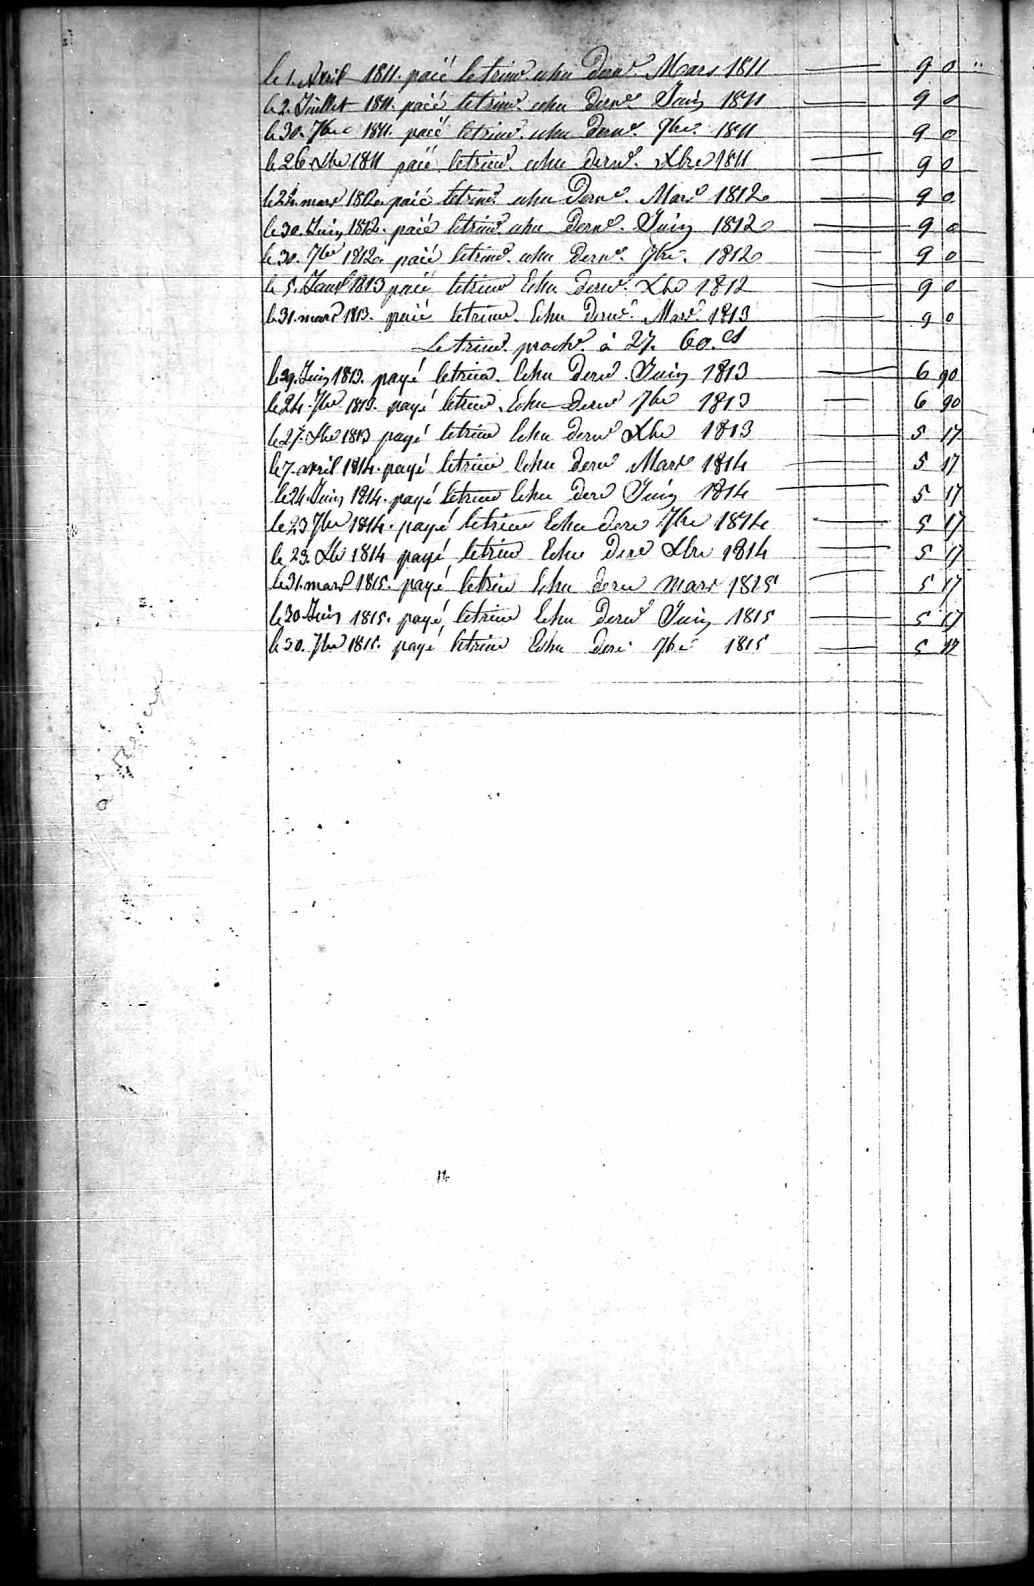 le 1. Avril 1811. paié le trim.e echu dern.r Mars 1811 — 9 0 "
le 2. Juillet 1811. paié le trim.e echu dern.r Juin 1811 — 9 0
le 30. 7bre 1811. paié le trim.e echu dern.r 7bre. 1811 — 9 0
le 26 Xbre 1811 paié le trim.e echu dern.r Xbre 1811 — 9 0
le 24. mars 1812. paié le trim.e echu Dern.r Mars 1812 — 9 0
le 30. Juin 1812. paié le trim.e echu Dern.r Juin 1812 — 9 0
le 30. 7bre 1812. paié le trim.e echu dern.r 7bre. 1812 — 9 0
le 5. Janv.r 1813 paié le trim.e Echu Dern.r Xbre 1812 — 9 0
le 31. mars 1813. paié le trim.e Echu Dern.r Mars 1813 — 9 0
Le trim.e proch.n à 27. 60. cs
le 29. Juin 1813. payé le trim.e Echu Dern.r Juin 1813 — 6 90
le 24. 7bre 1813. payé le trim.e Echu Dern.r 7bre 1813 — 6 90
le 27. Xbre 1813 payé le trim.e Echu dern.r Xbre 1813 — 5 17
le 7. avril 1814. payé le trim.e Echu dern.r Mars 1814 — 5 17
le 24. Juin 1814. payé le trim.e Echu der.e Juin 1814 — 5 17
le 23 7bre 1814. payé le trim.e Echu der.e 7bre 1814 — 5 17
le 23. Xbre 1814 payé le trim.e Echu Der.e Xbre 1814 — 5 17
le 31. mars 1815. payé le trim.e Echu der.e mars 1815 — 5 17
le 30 Juin 1815. payé le trim.e Echu Der.e Juin 1815 — 5 17
le 30. 7bre 1815. payé le trim.e Echu Der.e 7bre 1815 — 5 17